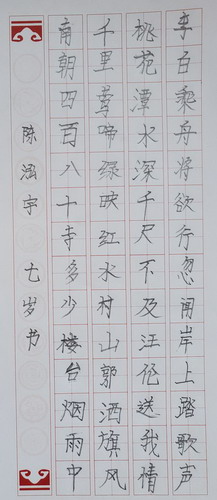 李白乘舟将欲行忽闻岸上踏歌声
桃花潭水深千尺不及汪伦送我情
千里莺啼绿映红水村山郭酒旗风
南朝四百八十寺多少楼台烟雨中
陈涵宇 七岁书